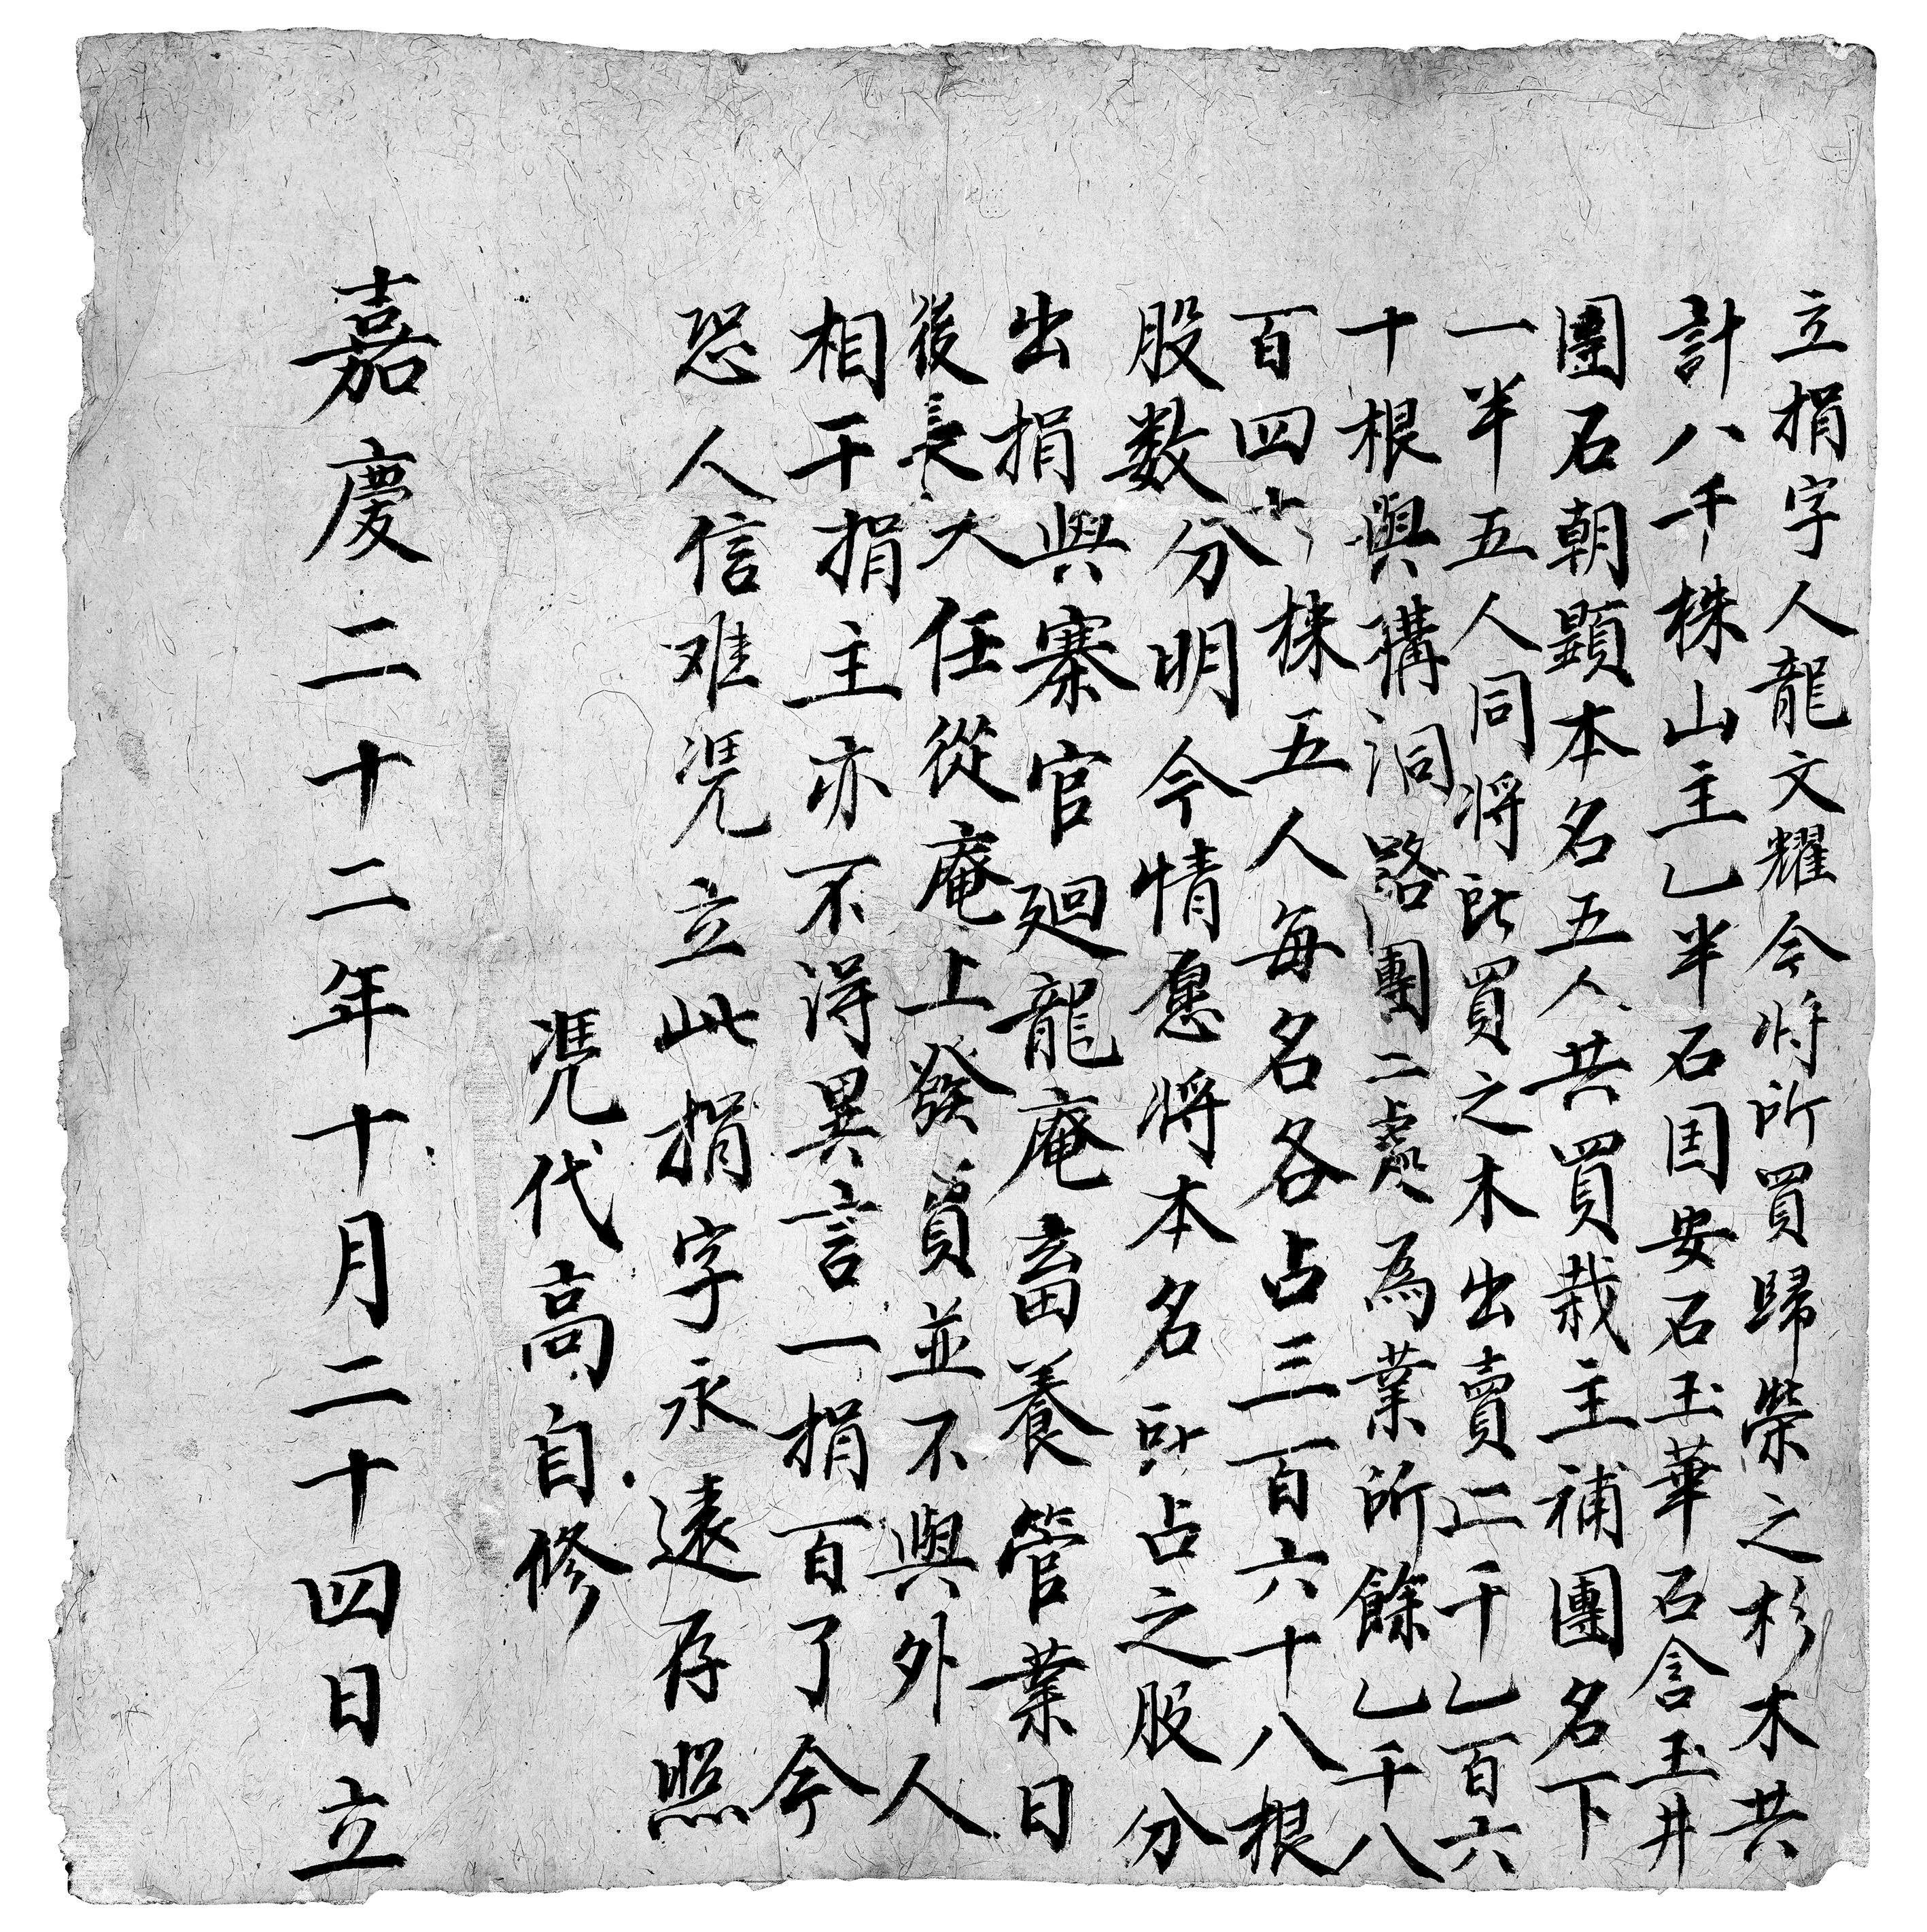 立捐字人龍文耀今将所買歸榮之杉木共
計八千株山主乚半石囯安石玉華石含玉井
團石朝顕本名五人共買栽主補團名下
一半五人同将此買之木出賣二千乚百六
十根與構洞路團二處為業所餘乚千八
百四十株五人每名各占三百六十八根
股数分明今情愿将本名所占之股分
出捐與寨官廻龍庵畜養管業日
後長大任從庵上發賣並不與外人
相干捐主亦不得異言一捐百了今
恐人信难凴立此捐字永遠存照
凴代髙自修
嘉慶二十二年十月二十四日立